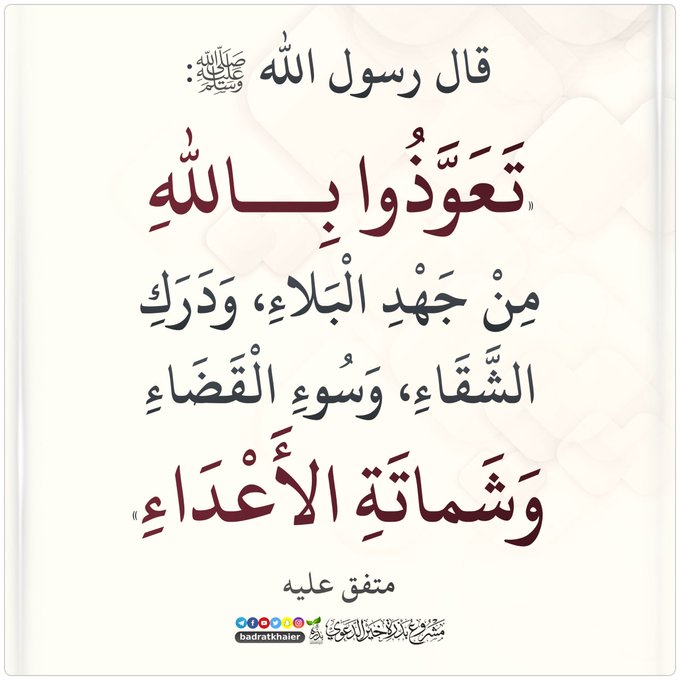 قال رسول الله ﷺ:
«تَعَوَّذُوا بِـــاللهِ
مِنْ جَهْدِ الْبَلاءِ، وَدَرَكِ
الشَّقَاءِ، وَسُوءِ الْقَضَاءِ
وَشَماتَةِ الأَعْدَاءِ»
متفق عليه
مشروع بذرة خير الدعوي بذرة
badratkhaier